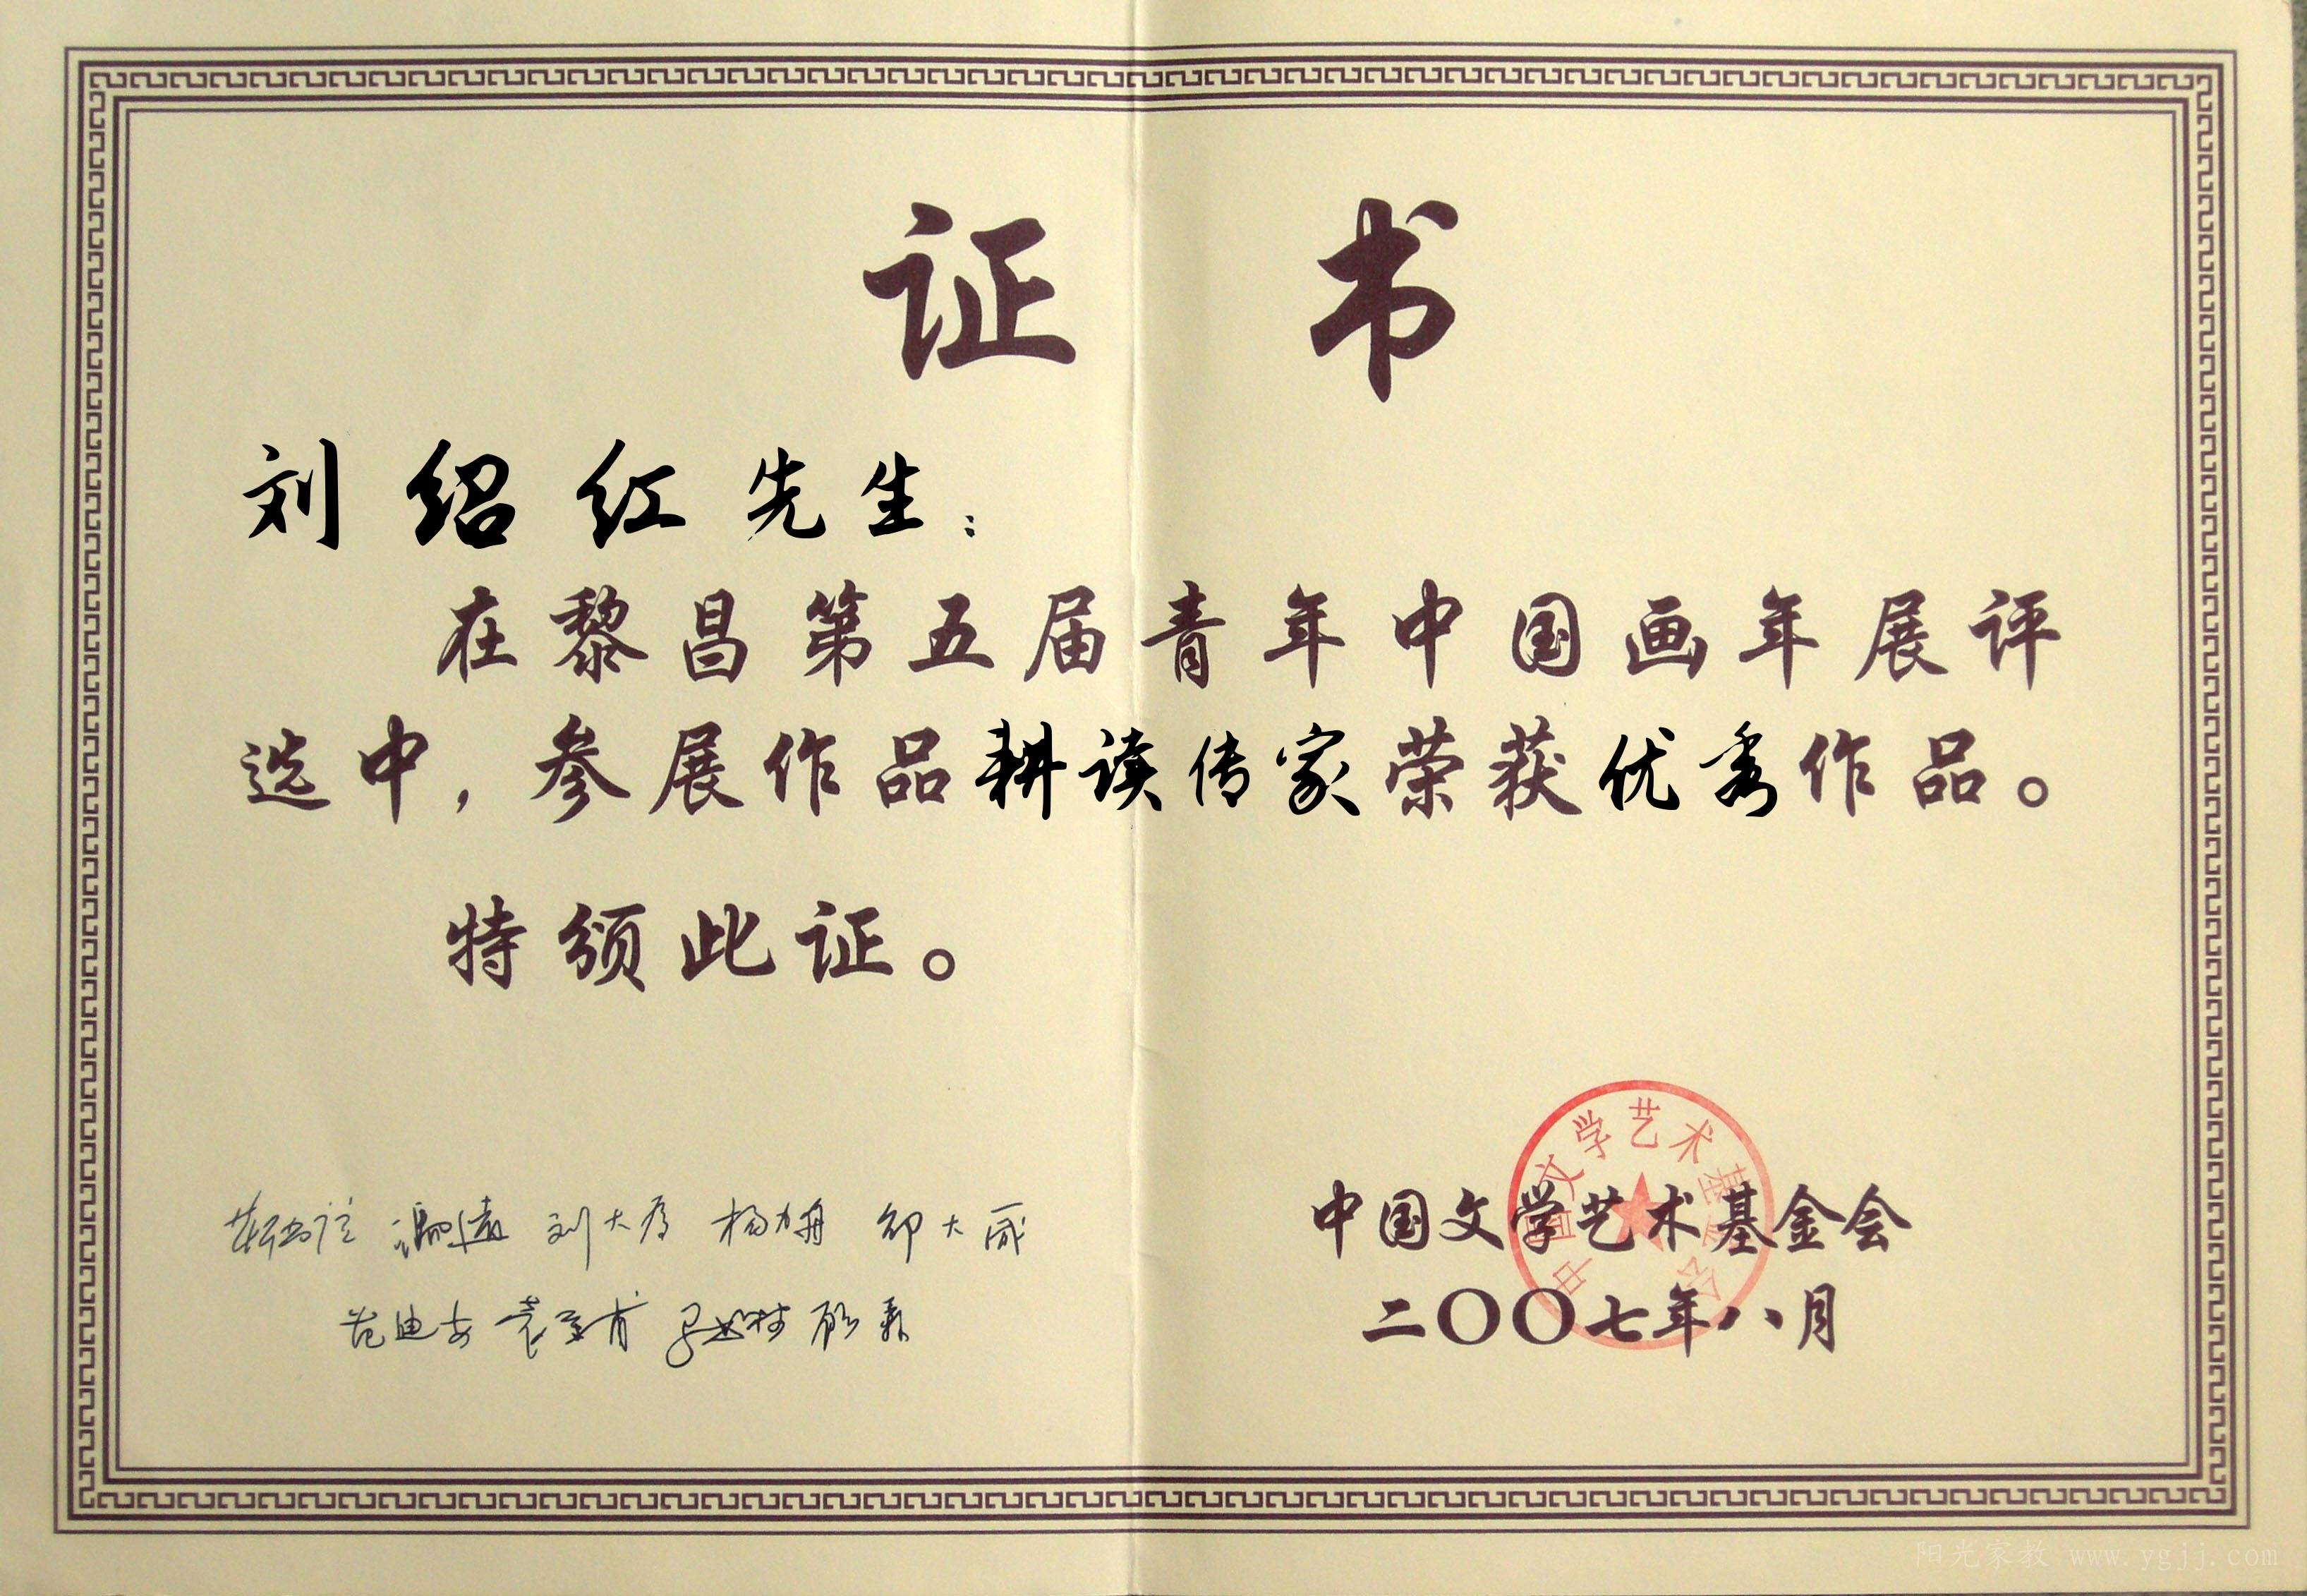 证书
刘绍红先生：
在黎昌第五届青年中国画年展评
选中，参展作品耕读传家荣获优秀作品。
特颁此证。
冯远 刘大为 杨力舟 邵大箴
范迪安 顾森
中国文学艺术基金会
中国文学艺术基金会
二〇〇七年八月
阳光家教 www.ygjj.com